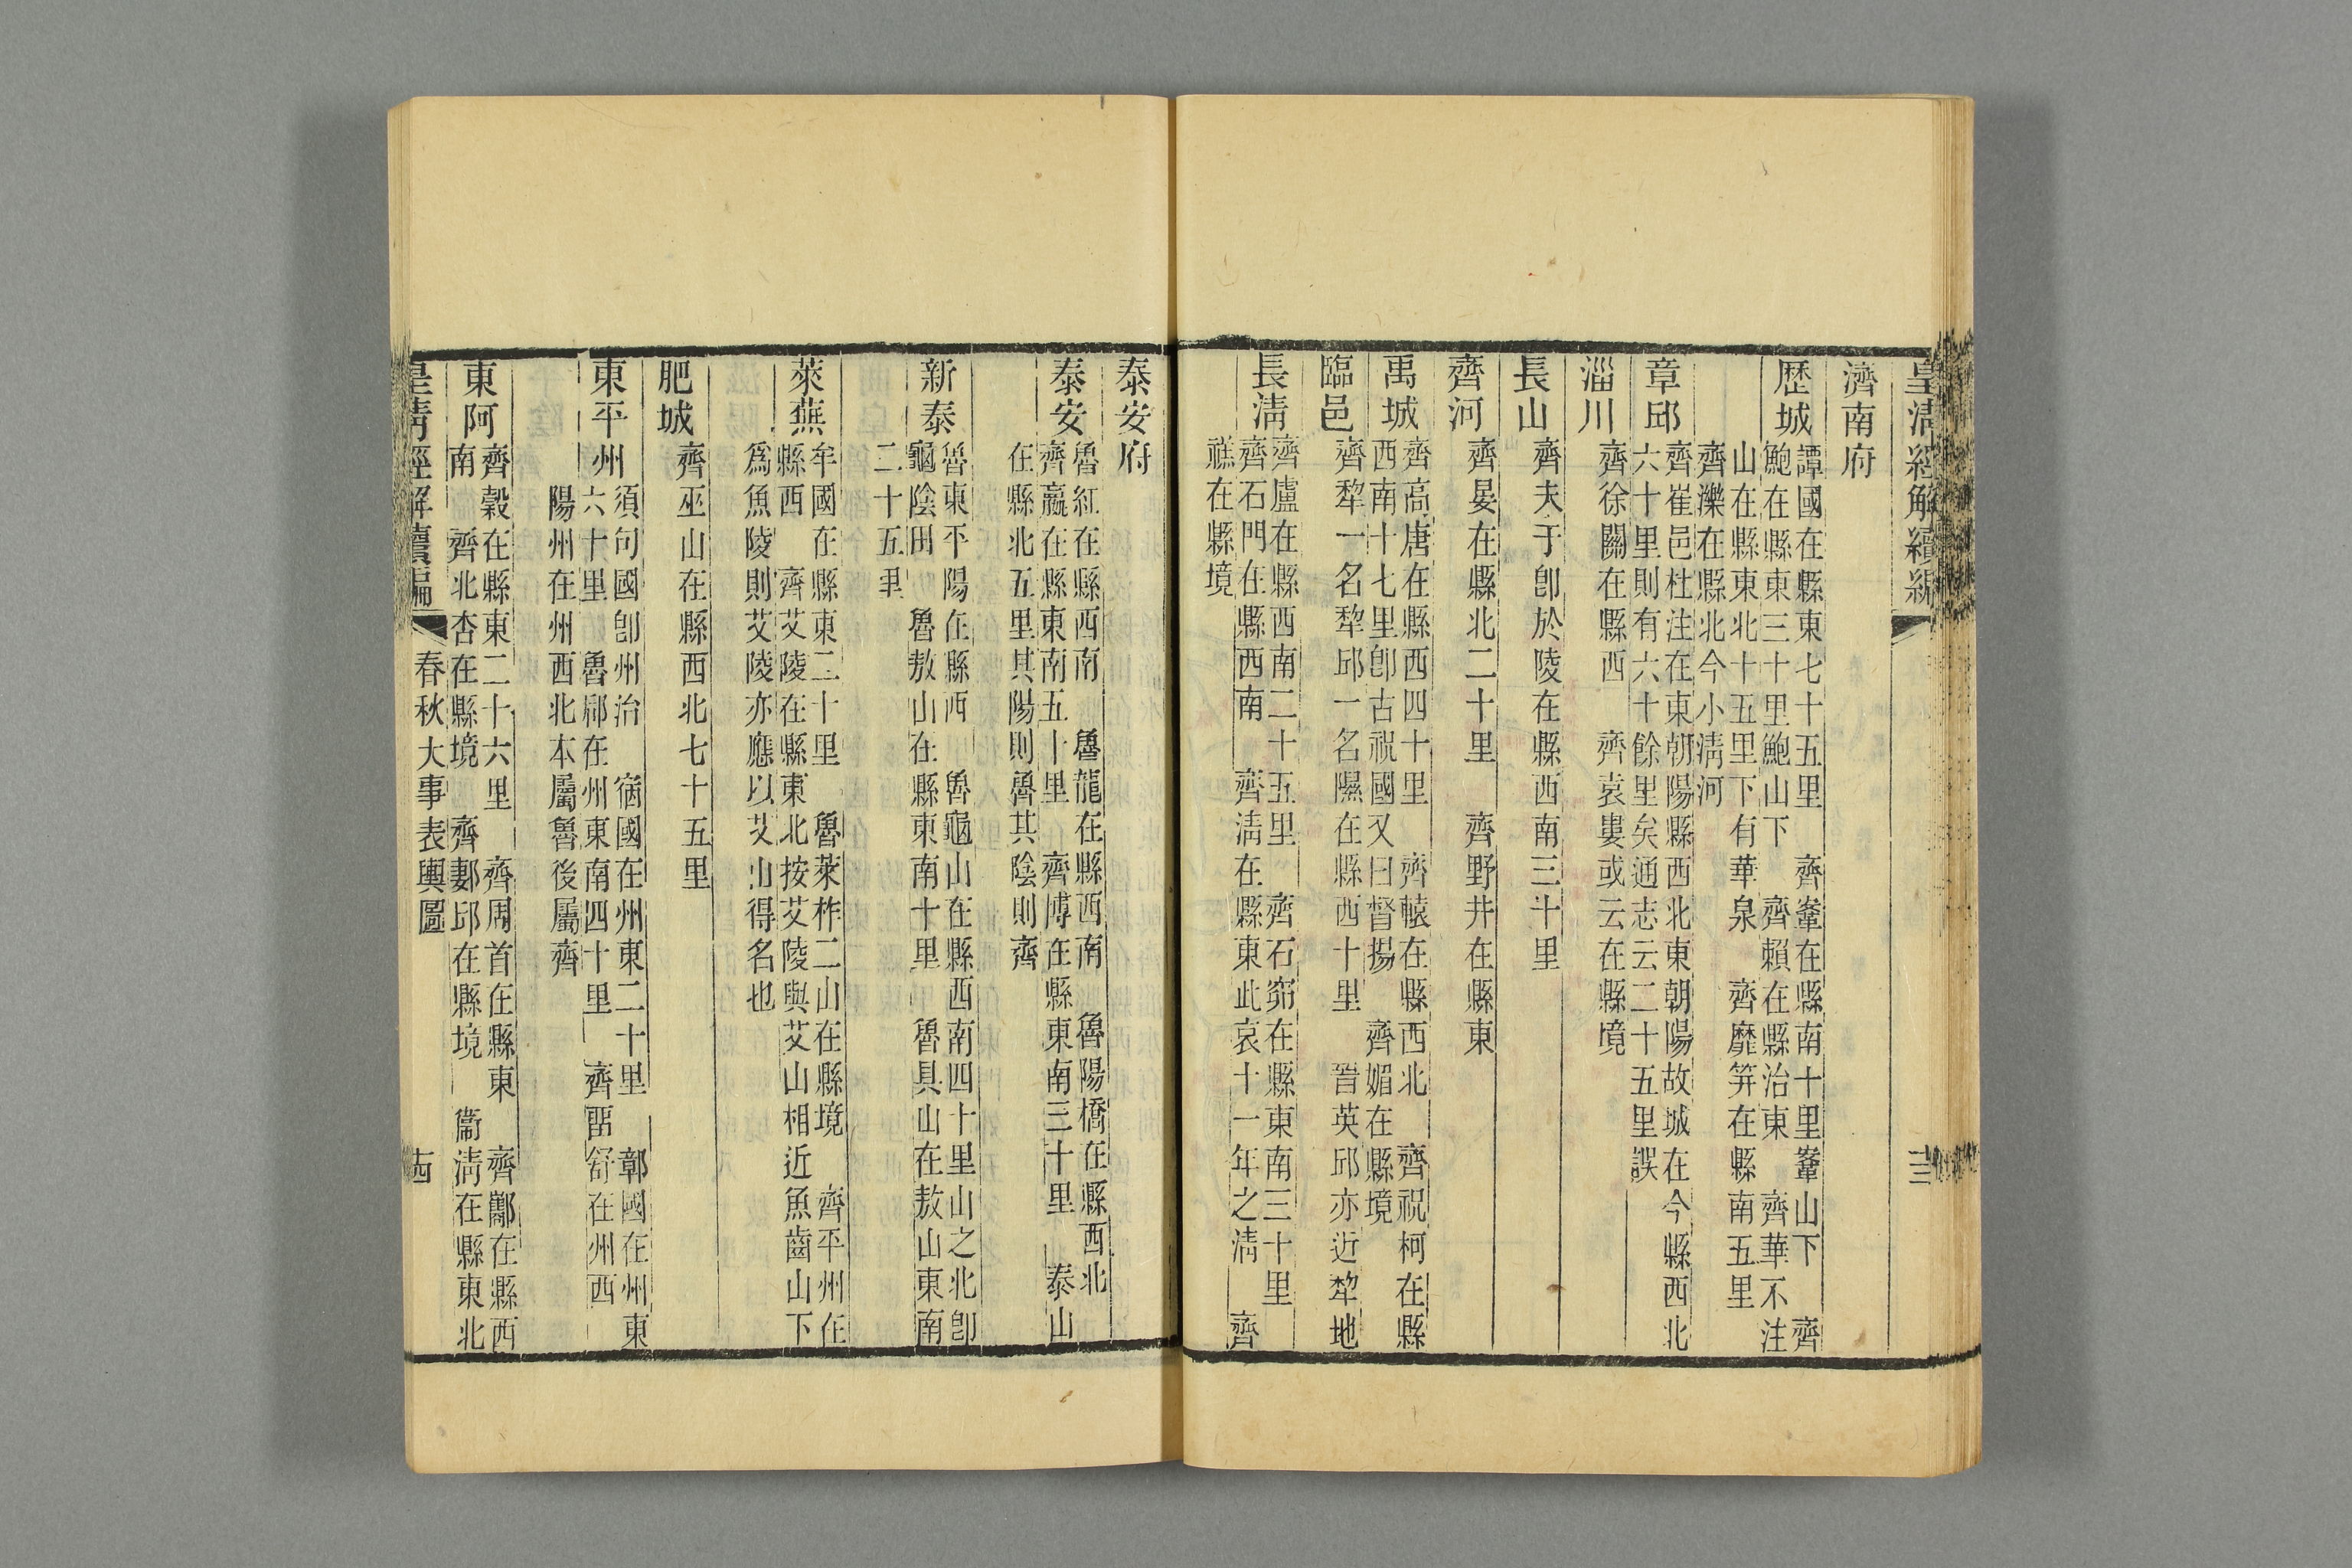 皇淸經解續編
濟南府
歷城
譚國在縣東七十五里 齊鞌在縣南十里鞌山下 齊
鮑在縣東三十里鮑山下 齊賴在縣治東 齊華不注
山在縣東北十五里下有華泉 齊靡筓在縣南五里
齊濼在縣北今小淸河
章邱
齊崔邑杜注在東朝陽縣西北東朝陽故城在今縣西北
六十里則有六十餘里矣通志云二十五里誤
淄川
齊徐關在縣西 齊袁婁或云在縣境
長山
齊夫于卽於陵在縣西南三十里
齊河
齊晏在縣北二十里 齊野井在縣東
禹城
齊高唐在縣西四十里 齊轅在縣西北 齊祝柯在縣
西南十七里卽古祝國又曰督揚 齊媚在縣境
臨邑
齊犂一名犂邱一名隰在縣西十里 晉英邱亦近犂地
長淸
齊盧在縣西南二十五里 齊石窌在縣東南三十里
齊石門在縣西南 齊淸在縣東此哀十一年之淸 齊
禚在縣境
泰安府
泰安
魯紅在縣西南 魯龍在縣西南 魯陽橋在縣西北
齊嬴在縣東南五十里 齊博在縣東南三十里 泰山
在縣北五里其陽則魯其陰則齊
新泰
魯東平陽在縣西 魯龜山在縣西南四十里山之北卽
龜陰田 魯敖山在縣東南十里 魯具山在敖山東南
二十五里
萊蕪
牟國在縣東二十里 魯萊柞二山在縣境 齊平州在
縣西 齊艾陵在縣東北按艾陵與艾山相近魚齒山下
爲魚陵則艾陵亦應以艾山得名也
肥城
齊巫山在縣西北七十五里
東平州
須句國卽州治 宿國在州東二十里 鄣國在州東
六十里 魯郕在州東南四十里 齊畱舒在州西
陽州在州西北本屬魯後屬齊
東阿
齊穀在縣東二十六里 齊周首在縣東 齊酅在縣西
南 齊北杏在縣境 齊鄋邱在縣境 衞淸在縣東北
皇淸經解續編 春秋大事表輿圖